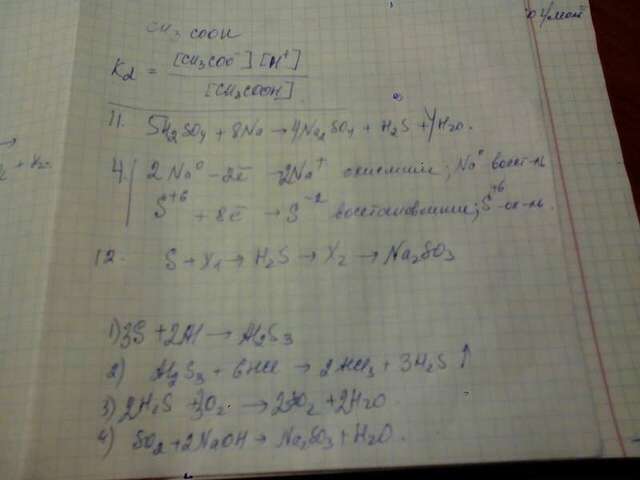 CH3COOH
Kд = [CH3COO⁻] [H⁺] / [CH3COOH]
11. 5H2SO4 + 8Na → 4Na2SO4 + H2S + 4H2O.
4 | 2Na⁰ - 2ē → 2Na⁺ окисление; Na⁰ восст-ль
S⁺⁶ + 8ē → S⁻² восстановление; S⁺⁶ ок-ль.
12. S → X1 → H2S → X2 → Na2SO3
1) 3S + 2Al → Al2S3
2) Al2S3 + 6HCl → 2AlCl3 + 3H2S ↑
3) 2H2S + 3O2 → 2SO2 + 2H2O
4) SO2 + 2NaOH → Na2SO3 + H2O.